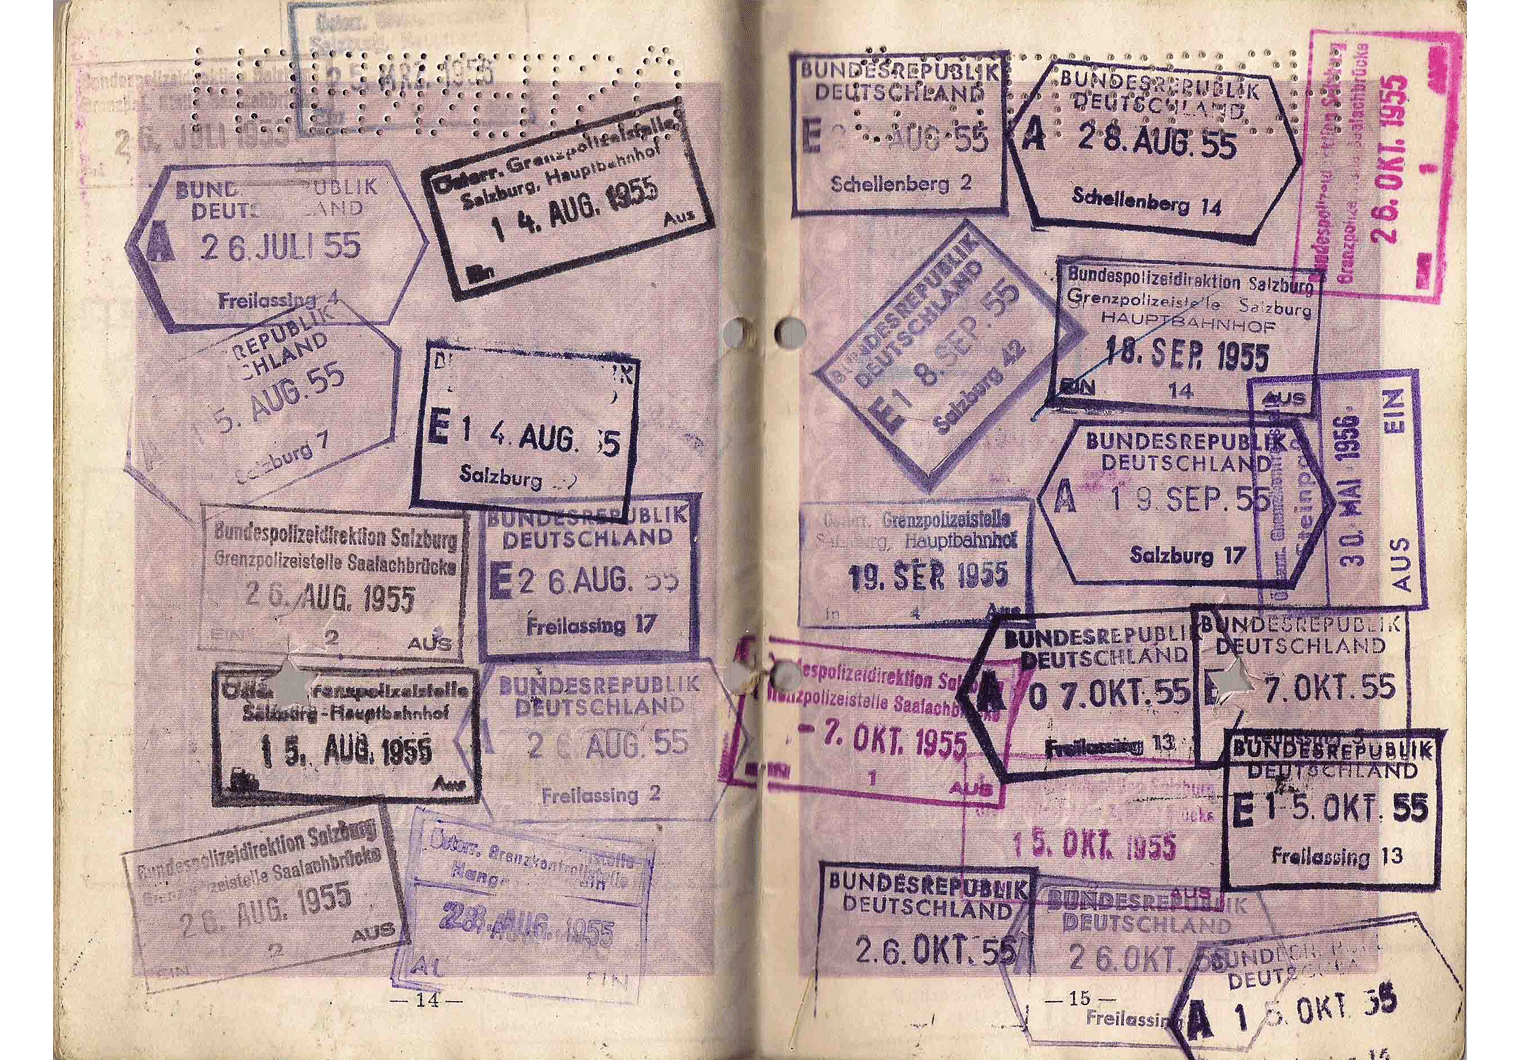 25. MRZ. 1956
Bundespolizeidirektion Salzburg
26. JULI 1955
BUND PUBLIK
DEUTS LAND
A 26. JULI 55
Freilassing 4
Österr. Grenzpolizeistelle
Salzburg, Hauptbahnhof
14. AUG. 1955
Ein Aus
REPUBLIK
CHLAND
A 15. AUG. 55
Salzburg 7
E 14. AUG. 55
Salzburg
Bundespolizeidirektion Salzburg
Grenzpolizeistelle Saalachbrücke
26. AUG. 1955
EIN 2 AUS
BUNDESREPUBLIK
DEUTSCHLAND
E 26. AUG. 55
Freilassing 17
Österr. Grenzpolizeistelle
Salzburg-Hauptbahnhof
15. AUG. 1955
Ein Aus
BUNDESREPUBLIK
DEUTSCHLAND
A 26 AUG. 55
Freilassing 2
Bundespolizeidirektion Salzburg
Grenzpolizeistelle Saalachbrücke
26. AUG. 1955
EIN 2 AUS
Österr. Grenzkontrollstelle
Hang
28. AUG. 1955
EIN
— 14 —
BUNDESREPUBLIK
DEUTSCHLAND
E AUG 55
Schellenberg 2
BUNDESREPUBLIK
DEUTSCHLAND
A 28. AUG. 55
Schellenberg 14
Bundespolizeidirektion Salzburg
Grenzpolizeistelle Saalachbrücke
26. OKT. 1955
EIN 1 AUS
BUNDESREPUBLIK
DEUTSCHLAND
E 18. SEP. 55
Salzburg 42
Bundespolizeidirektion Salzburg
Grenzpolizeistelle Salzburg
HAUPTBAHNHOF
18. SEP. 1955
EIN 14 AUS
BUNDESREPUBLIK
DEUTSCHLAND
A 19. SEP. 55
Salzburg 17
Österr. Grenzkontrollstelle
Steinpaß
30. MAI 1956
AUS EIN
Österr. Grenzpolizeistelle
Salzburg, Hauptbahnhof
19. SEP. 1955
Ein 4 Aus
Bundespolizeidirektion Salzburg
Grenzpolizeistelle Saalachbrücke
- 7. OKT. 1955
EIN 1 AUS
BUNDESREPUBLIK
DEUTSCHLAND
A 07. OKT. 55
Freilassing 13
BUNDESREPUBLIK
DEUTSCHLAND
E 7. OKT. 55
Freilassing
15. OKT. 1955
AUS
BUNDESREPUBLIK
DEUTSCHLAND
E 15. OKT. 55
Freilassing 13
BUNDESREPUBLIK
DEUTSCHLAND
26. OKT. 55
BUNDESREPUBLIK
DEUTSCHLAND
26. OKT. 55
Freilassing
BUNDESREPUBLIK
DEUTSCHLAND
A 15. OKT. 55
— 15 —